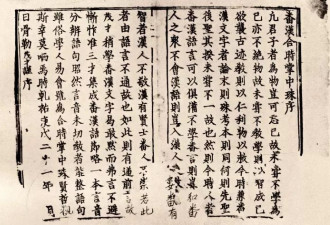 番漢合時掌中珠序
凡君子者為物豈可忘己故未嘗不學為
己亦不絕物故未嘗不教學則以智成己
欲襲古迹教則以仁利物以救今時兼番
漢文字者論末則殊考本則同何則先聖
後聖其揆未嘗不一故也然則今時人者
番漢語言可以俱備不學番言則豈和番
人之衆不會漢語則豈入漢人之數番有
智者漢人不敬漢有賢士番人不崇若此
者由語言不通故也如此則有逆前言故
茂才稍學番漢文字曷敢默而弗言不避
慚怍准三才集成番漢語節略一本言音
分辨語句昭然言音未切教者能整語句
雖俗學人易會號為合時掌中珠賢哲覩
斯幸莫哂焉時乾祐庚戌二十一年 月
日骨勒茂才謹序